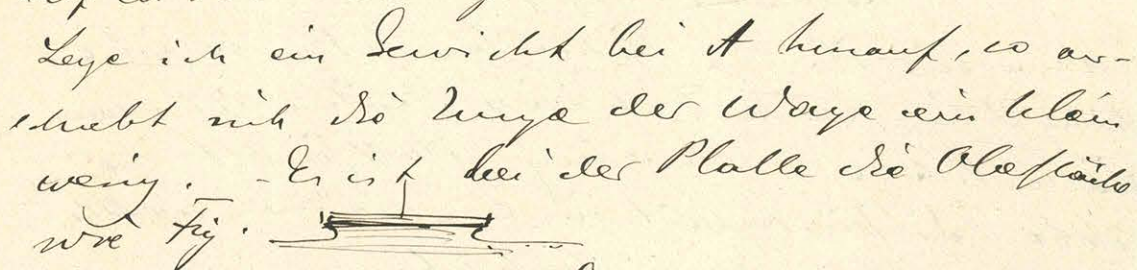 Lege ich ein Gewicht bei A hinauf, so ver-
schiebt sich die Zunge der Wage ein klein
wenig. – Es ist bei der Platte die Oberfläche
wie Fig.